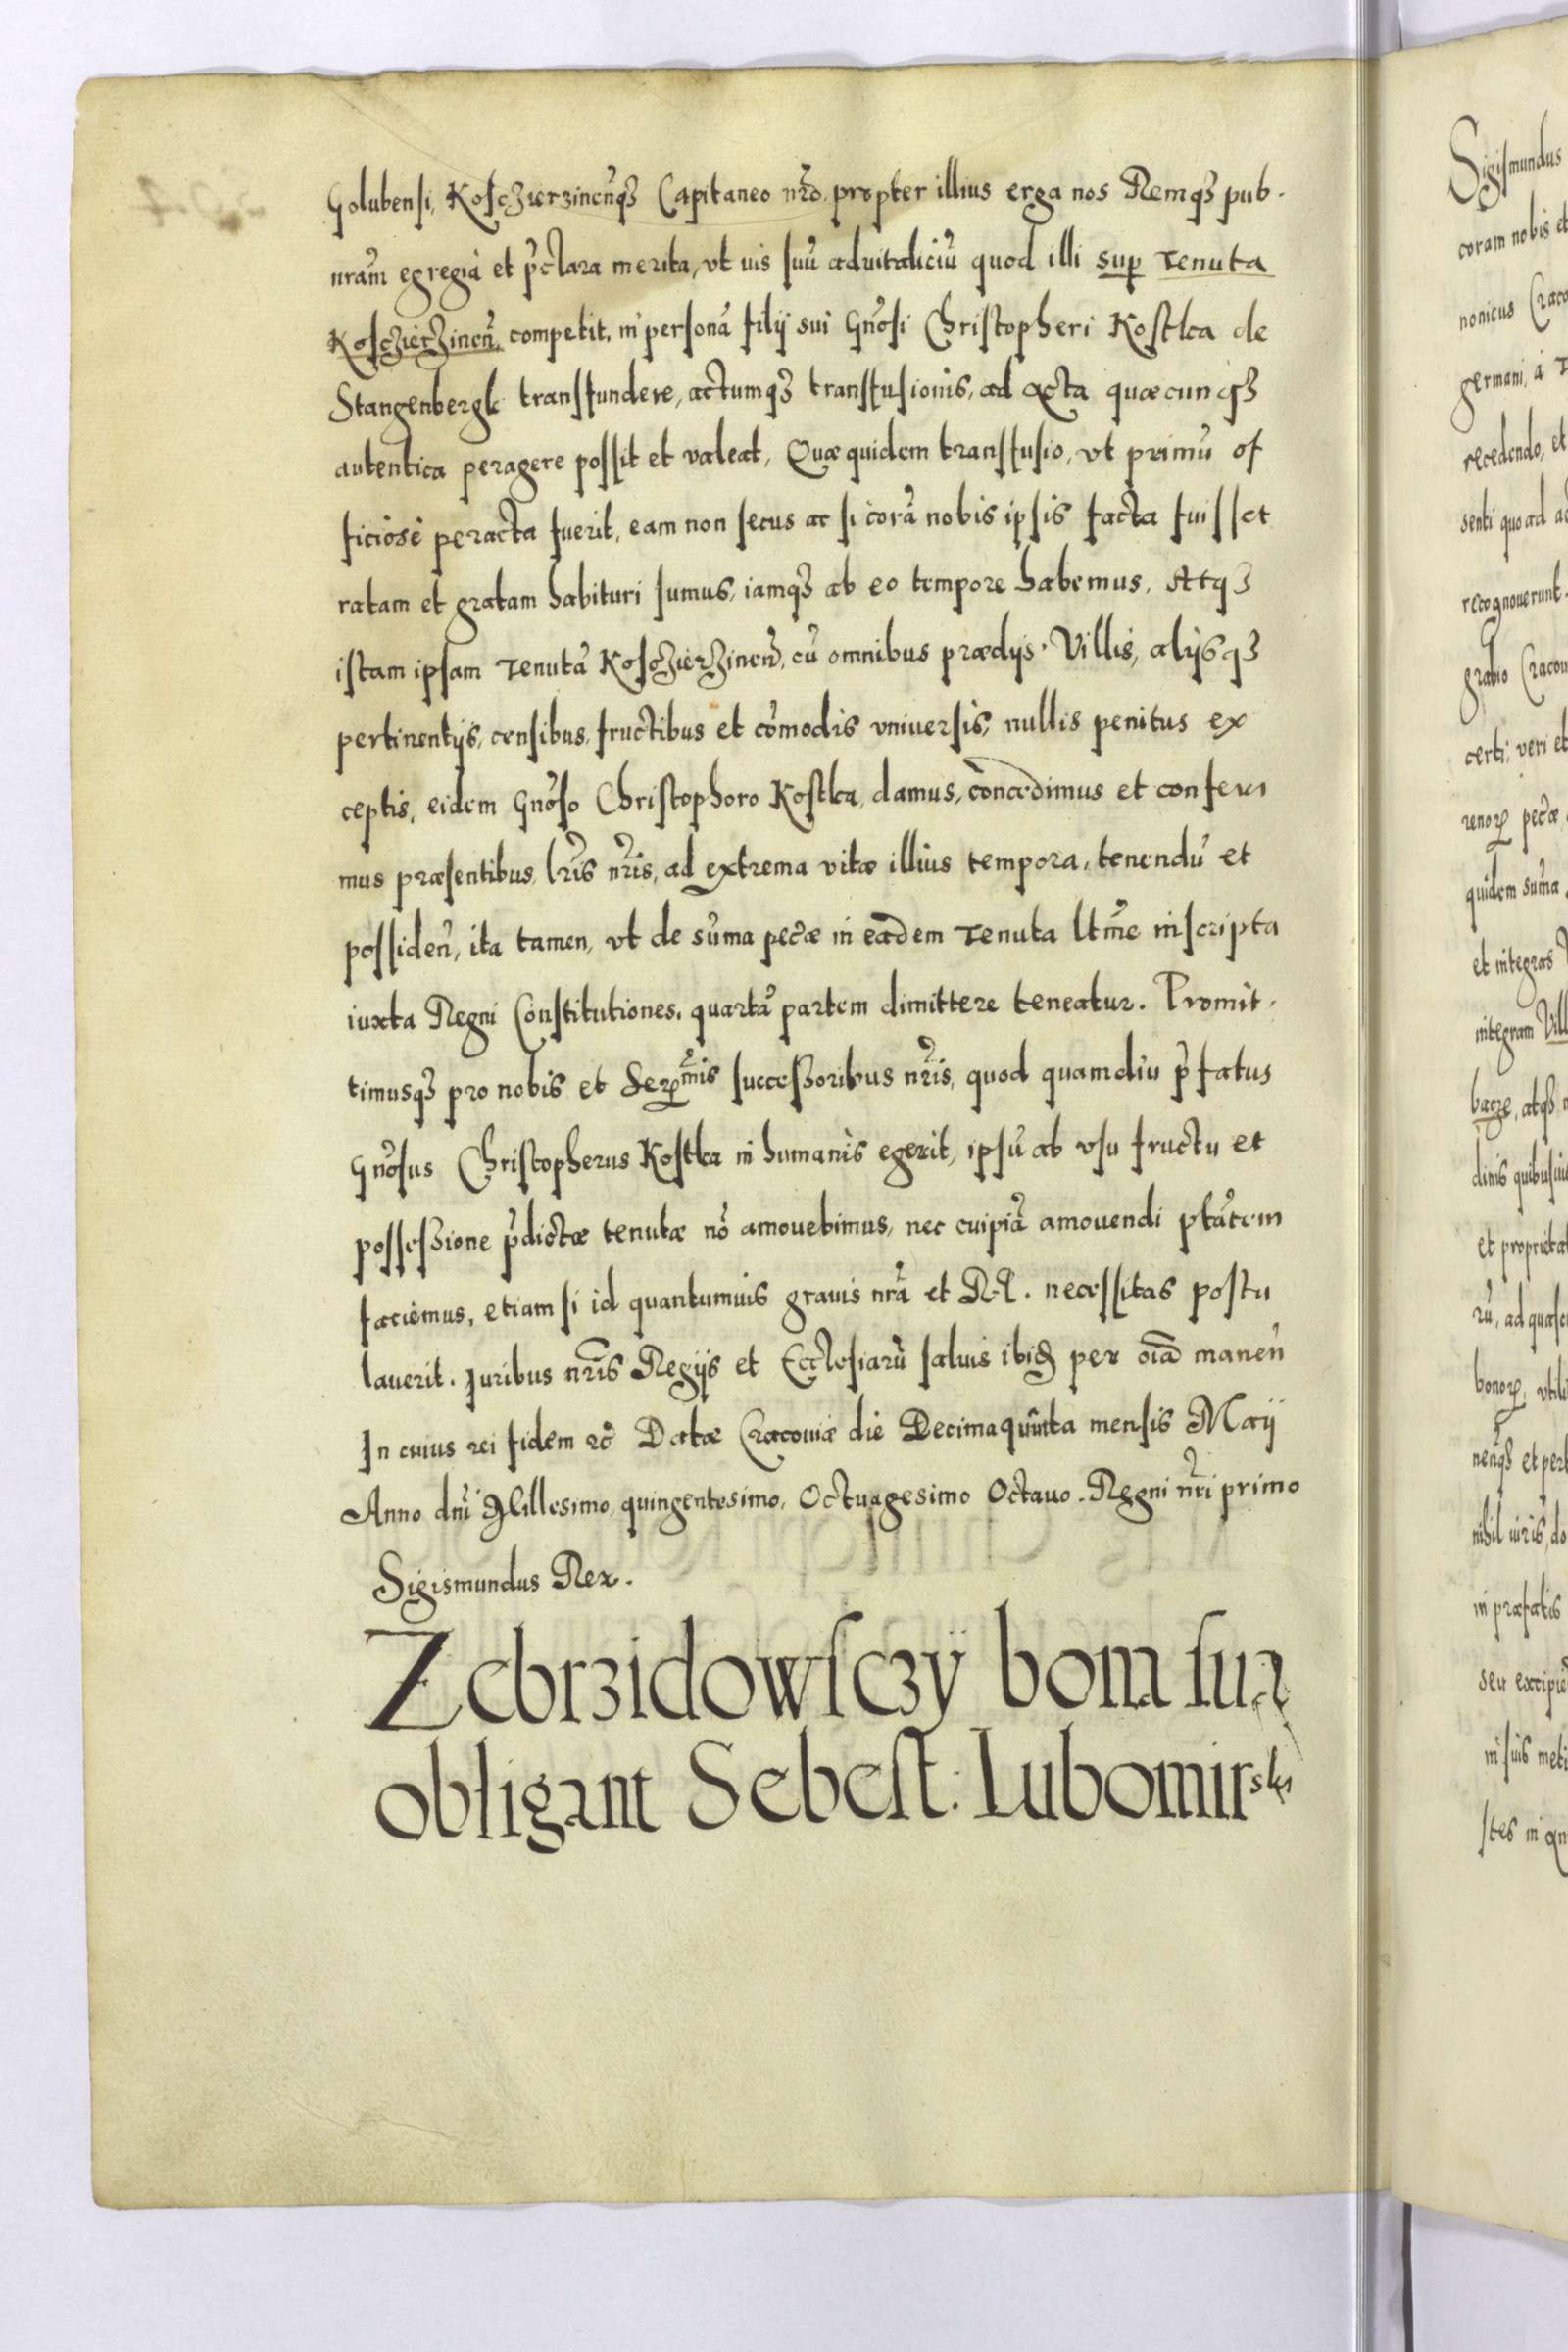 Golubensi, Kosczierzinen̄q₃ Capitaneo nr̄o, propter illius erga nos Remq₃ pub.
nram̄ egregia et p̄clara merita, vt ius suū aduitaliciū quod illi sup̱ Tenuta
Kosczierzinen̄. competit, in personā filij sui Gn̄osi Christopheri Kostka de
Stangenbergk transfundere, actumq₃ transfusionis, ad acta quæcunq₃
autentica peragere possit et valeat, Quæ quidem transfusio, vt primū of
ficiose peracta fuerit, eam non secus ac si corā nobis ipsis facta fuisset
ratam et gratam habituri sumus, iamq₃ ab eo tempore habemus. Atq₃
istam ipsam Tenutā Kosczierzinen̄, cū omnibus prædijs. Villis, alijsq₃
pertinentijs, censibus, fructibus et com̄odis vniuersis, nullis penitus ex
ceptis, eidem Gn̄oso Christophoro Kostka, damus, concedimus et conferi
mus præsentibus, lr̄is nr̄is, ad extrema vitæ illius tempora, tenendū et
possiden̄, ita tamen, vt de sum̄a pec̄æ in eadem Tenuta lt̄me inscripta
iuxta Regni Constitutiones, quartā partem dimittere teneatur. Promit.
timusq₃ pro nobis et Ser̄mis successoribus nr̄is, quod quamdiu p̄fatus
Gn̄osus Christopherus Kostka in humanis egerit, ipsū ab vsu fructu et
possessione p̄dictæ tenutæ nō amouebimus, nec cuipiā amouendi ptāt̄em
faciemus, etiam si id quantumuis grauis nr̄a et R. P. necessitas postu
lauerit. Juribus nr̄is Regijs et Ecclesiarū saluis ibid̄ per oīa manen̄
In cuius rei fidem &c̄ Datæ Cracouiæ die Decimaquinta mensis Maij
Anno dn̄i Millesimo, quingentesimo, Octuagesimo Octauo. Regni nr̄i primo
Sigismundus Rex.
Zebrzidowsczÿ bona sua
obligant Sebest: Lubomirski
Sigismundus
coram nobis et
nonicus Craco
germani, a
recedendo, et
senti quo ad
recognouerunt.
certi, veri et
quidem sum̄a
et integras
integram Vill
et proprietat
nihil iuris, do
in præfatis
seu excipie